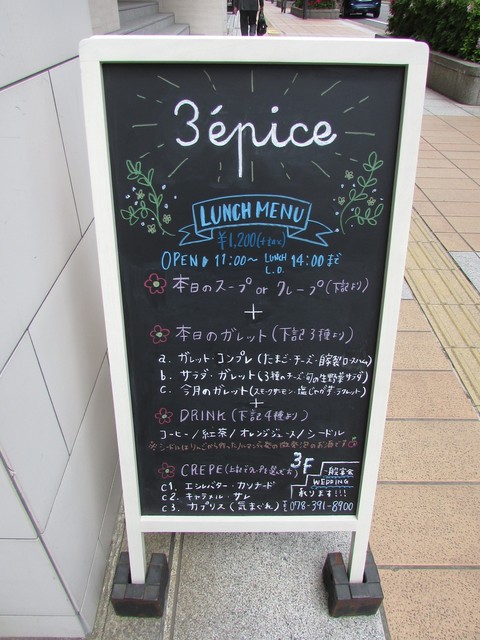 3épice
LUNCH MENU
¥1,200(+tax)
OPEN▶11:00〜 LUNCH L.O. 14:00まで
本日のスープ or クレープ(下記より)
+
本日のガレット(下記3種より)
a. ガレット・コンプレ(たまご・チーズ・自家製ロースハム)
b. サラダ・ガレット(3種のチーズ・旬の生野菜サラダ)
c. 今月のガレット(スモークサーモン・塩じゃが芋・ラクレット)
+
DRINK(下記4種より)
コーヒー/紅茶/オレンジジュース/シードル
※シードルはりんごから作ったノルマンディ
CREPE
3F
WEDDING
承ります!!!
c1. エシレバター・カソナード
c2. キャラメル・サレ
c3. カプリス(気まぐれ)
078-391-8900